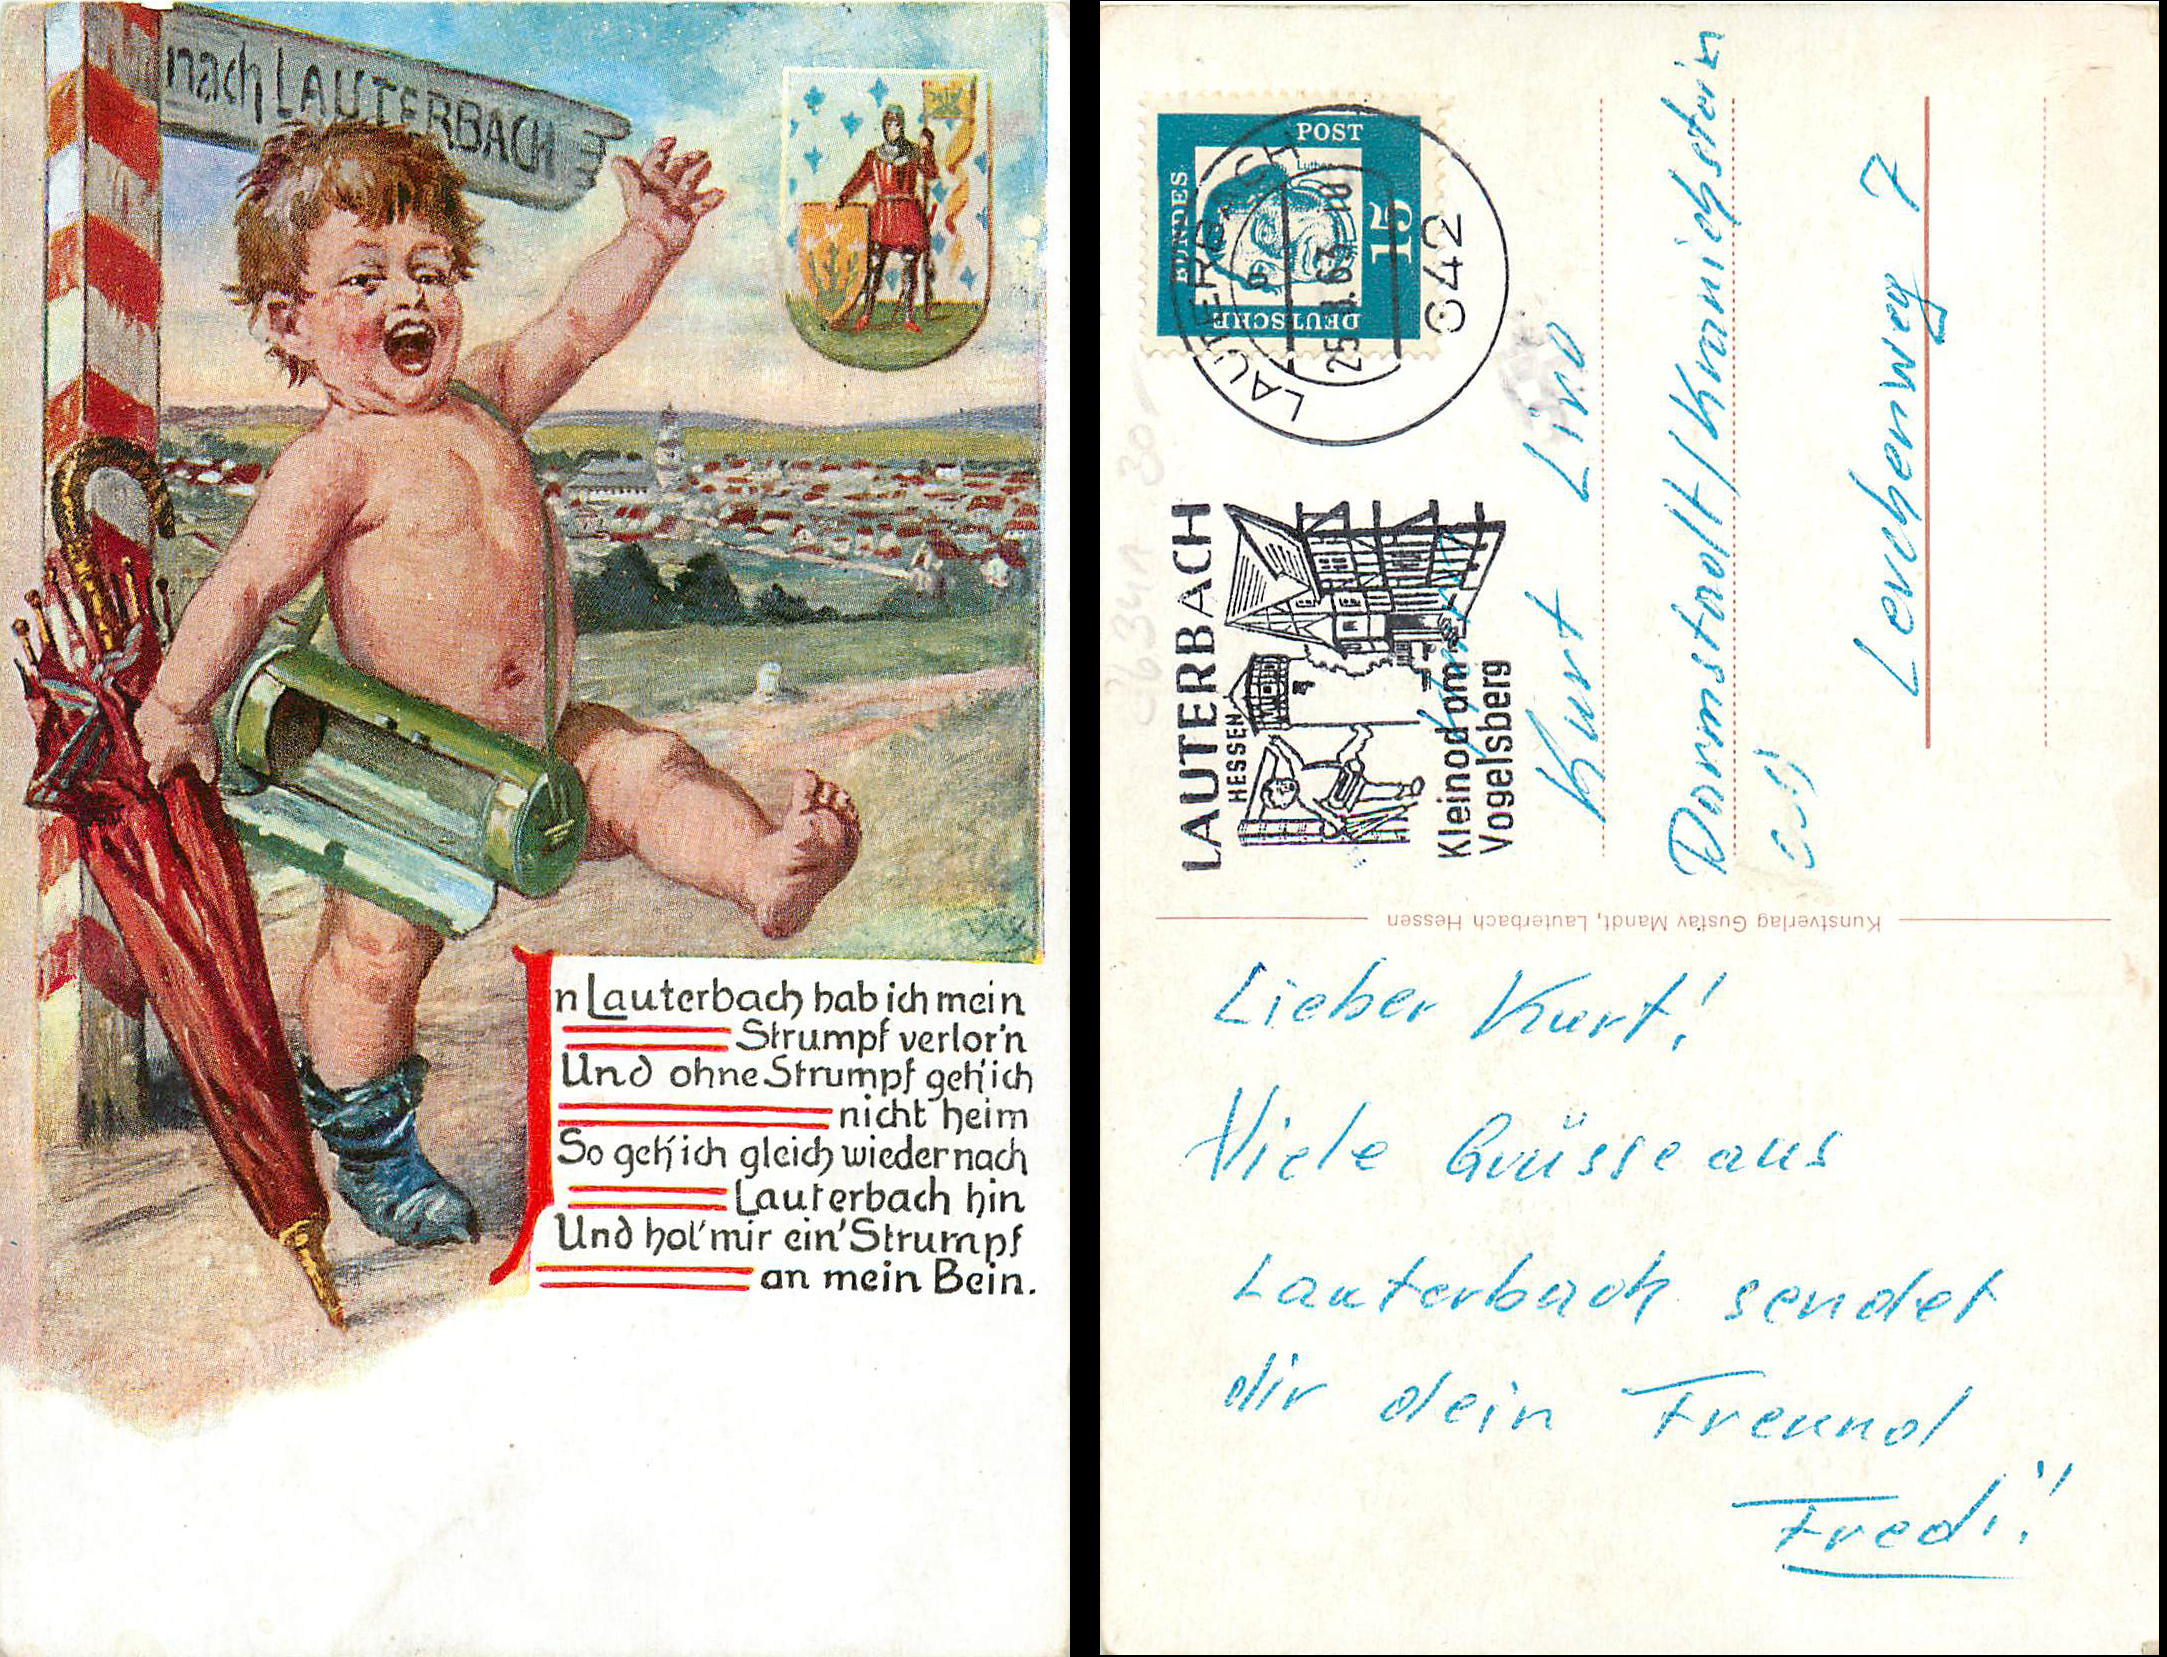 nach LAUTERBACH
In Lauterbach hab ich mein
Strumpf verlor'n
Und ohne Strumpf geh' ich
nicht heim
So geh' ich gleich wieder nach
Lauterbach hin
Und hol' mir ein' Strumpf
an mein Bein.
DEUTSCHE
BUNDES
POST
15
Luther
LAUTERBACH
25.1.63
642
LAUTERBACH
HESSEN
Kleinod am
Vogelsberg
Kurt Lind
Darmstadt/Krannichstein
Lerchenweg 7
Kunstverlag Gustav Mandt, Lauterbach Hessen
Lieber Kurt!
Viele Grüsse aus
Lauterbach sendet
dir dein Freund
Fredi!